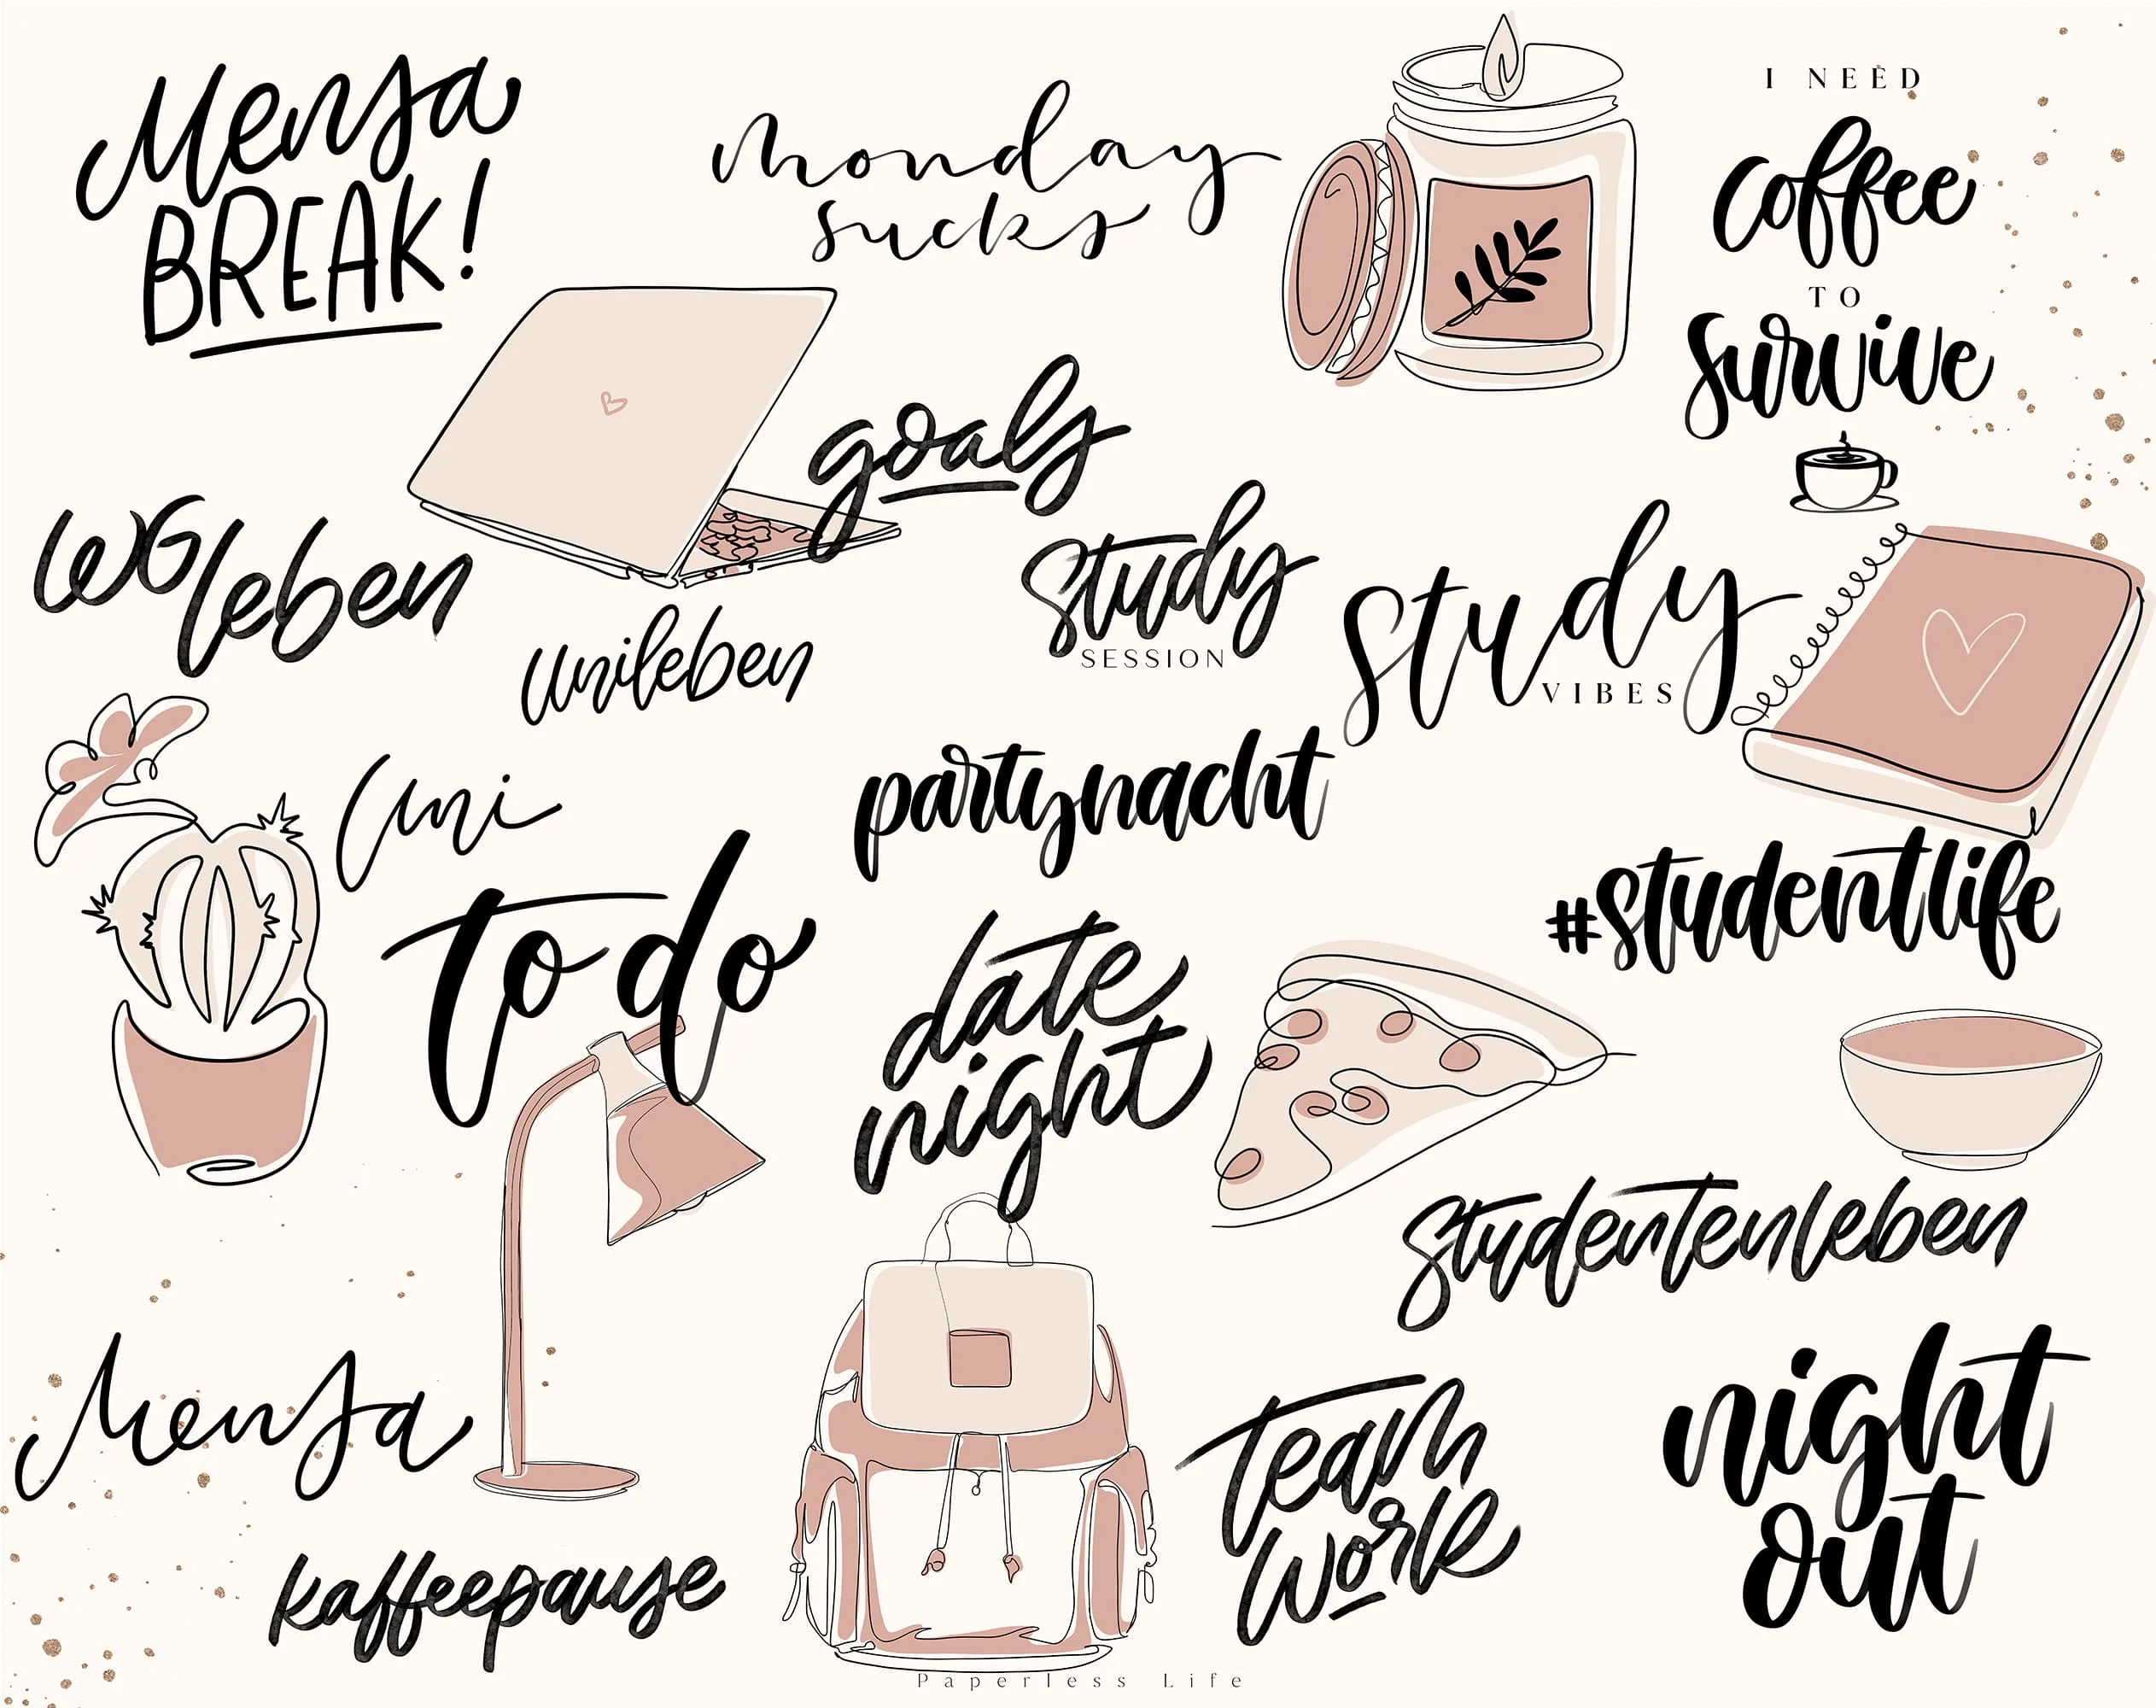 Mensa
BREAK!
monday
sucks
I NEED
coffee
TO
survive
goals
WG leben
unileben
study
SESSION
study
VIBES
uni
partynacht
#studentlife
to do
date
night
studentenleben
Mensa
team
work
night
out
kaffeepause
Paperless Life